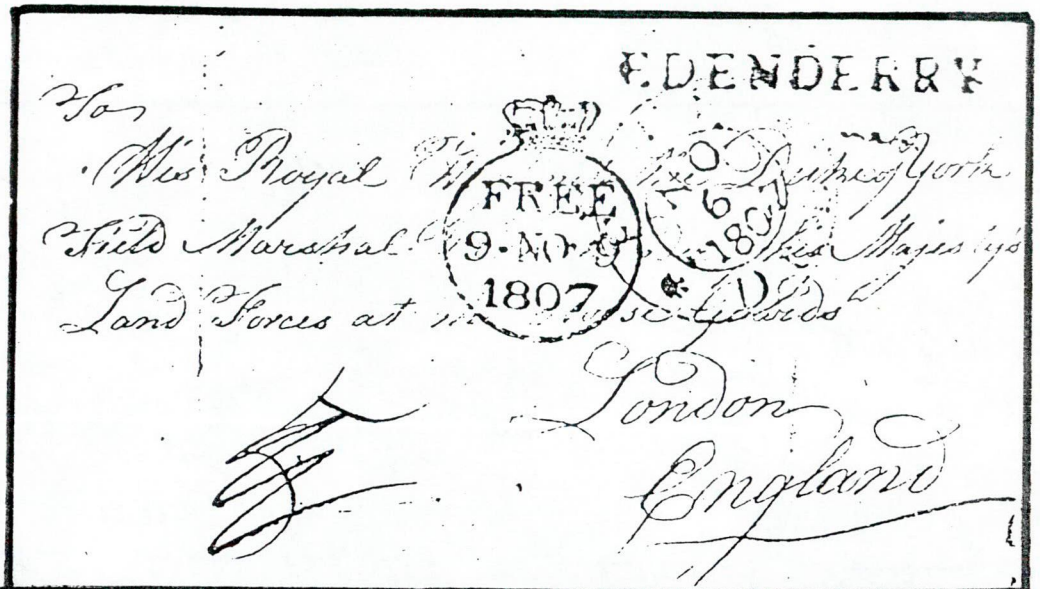 EDENDERRY
To
His Royal the Duke of York
Field Marshal His Majesty's
Land Forces at
London
England
FREE
9·NO·9
1807
NO
6
1807
D